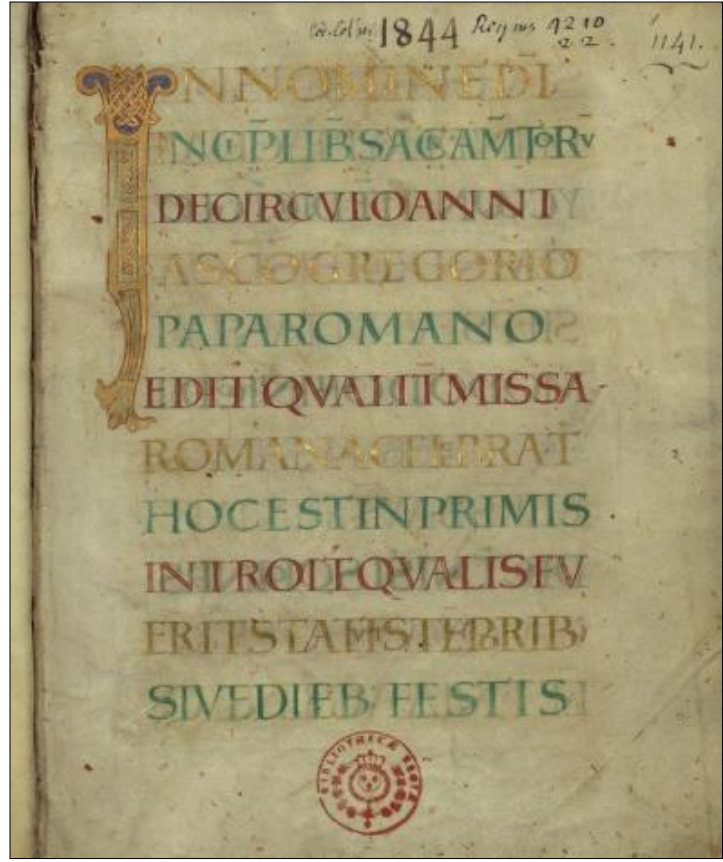 1844 Regius 4210
2.2.
1141.
INNOMINED̄I
INCIP̄LIBSACRAM̄TORV
DECIRCVLOANNI
ASC̄OGREGORIO
PAPAROMANO
EDIT̄QVALIT̄MISSA
ROMANACELEBRAT̄
HOCESTINPRIMIS
INTROIT́QVALISFV
ERITSTATIS
SIVEDIEBFESTIS
BIBLIOTHECÆ REGIÆ